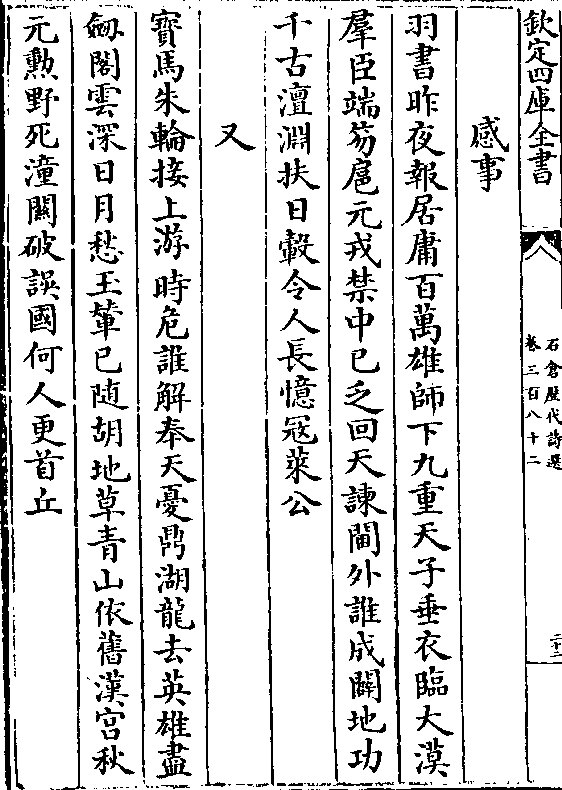 欽定四庫全書
石倉歷代詩選
卷三百八十二
二十二
感事
羽書昨夜報居庸百萬雄師下九重天子垂衣臨大漠
羣臣端笏扈元戎禁中已乏回天諫閫外誰成闢地功
千古澶淵扶日轂令人長憶冦萊公
又
寳馬朱輪接上游時危誰解奉天憂鼎湖龍去英雄盡
劔閣雲深日月愁玉輦已随胡地草青山依舊漢宫秋
元勲野死潼關破誤國何人更首丘